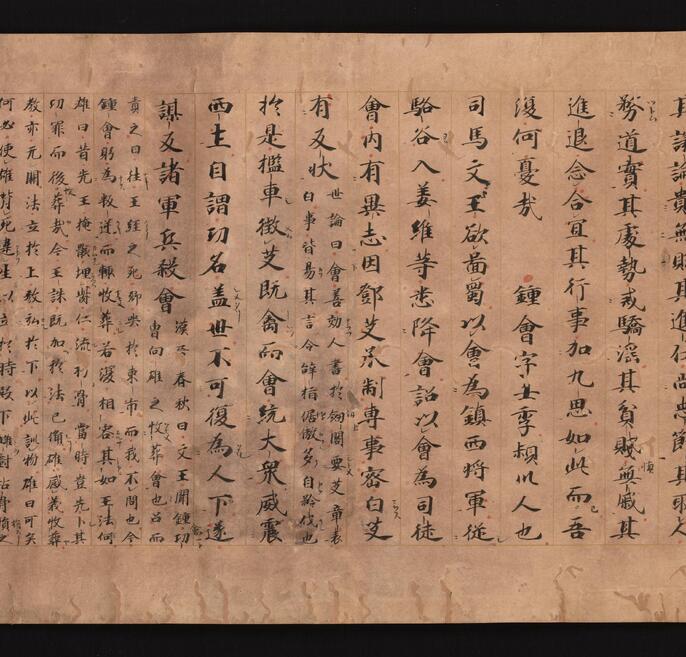 其議論貴無貶其進仕尚忠節其取人
務道實其處勢戒驕滛其貧賤無慼其
進退念合宜其行事加九思如此而吾
復何憂哉　鍾會字士季頴川人也
司馬文王欲啚蜀以會為鎮西將軍從
駱谷入姜維等悉降會詔以會為司徒
會内有異志因鄧艾承制專事密白艾
有反狀
世論曰會善効人書於劔閣要艾章表
白事皆易其言令辭指倨慠多自矜伐也
於是檻車徵艾既禽而會統大衆威震
西土自謂功名盖世不可復為人下遂
謀反諸軍兵殺會
漢晉春秋曰文王聞鍾功
曹向雄之收葬會也召而
責之曰往王經之死卿哭於東市而我不問也今
鍾會躬為叛逆而輙收葬若復相容其如王法何
雄曰昔先王掩骼埋胔仁流朽骨當時豈先卜其
功罪而後葬哉今王誅既加於法已備雄感義收葬
教亦无闕法立於上教弘於下以此訓物雄曰可矣
何必使雄背死違生以立於時殿下讎對枯骨捐之